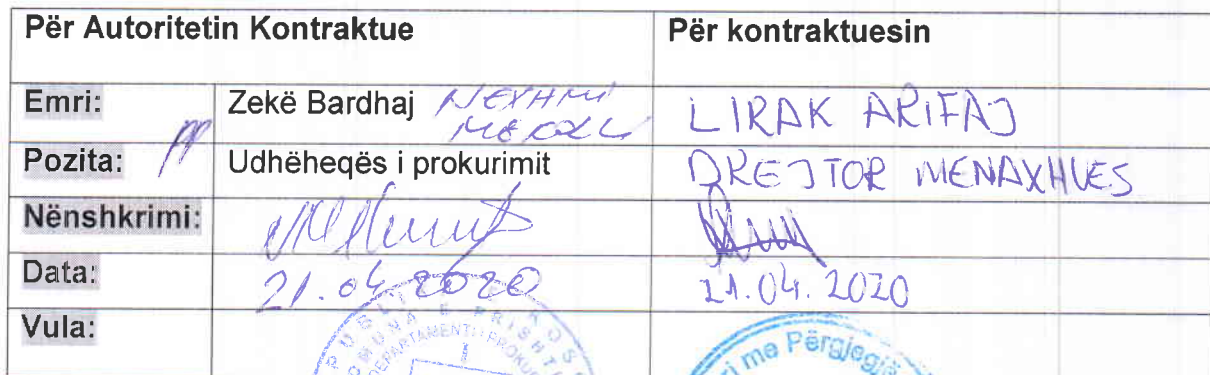 Për Autoritetin Kontraktue Për kontraktuesin
Emri: Zekë Bardhaj NEXHMI LIRAK ARIFAJ
Pozita: Udhëheqës i prokurimit DREJTOR MENAXHUES
Nënshkrimi:
Data: 21.04.2020 21.04.2020
Vula:
me Përgjegj